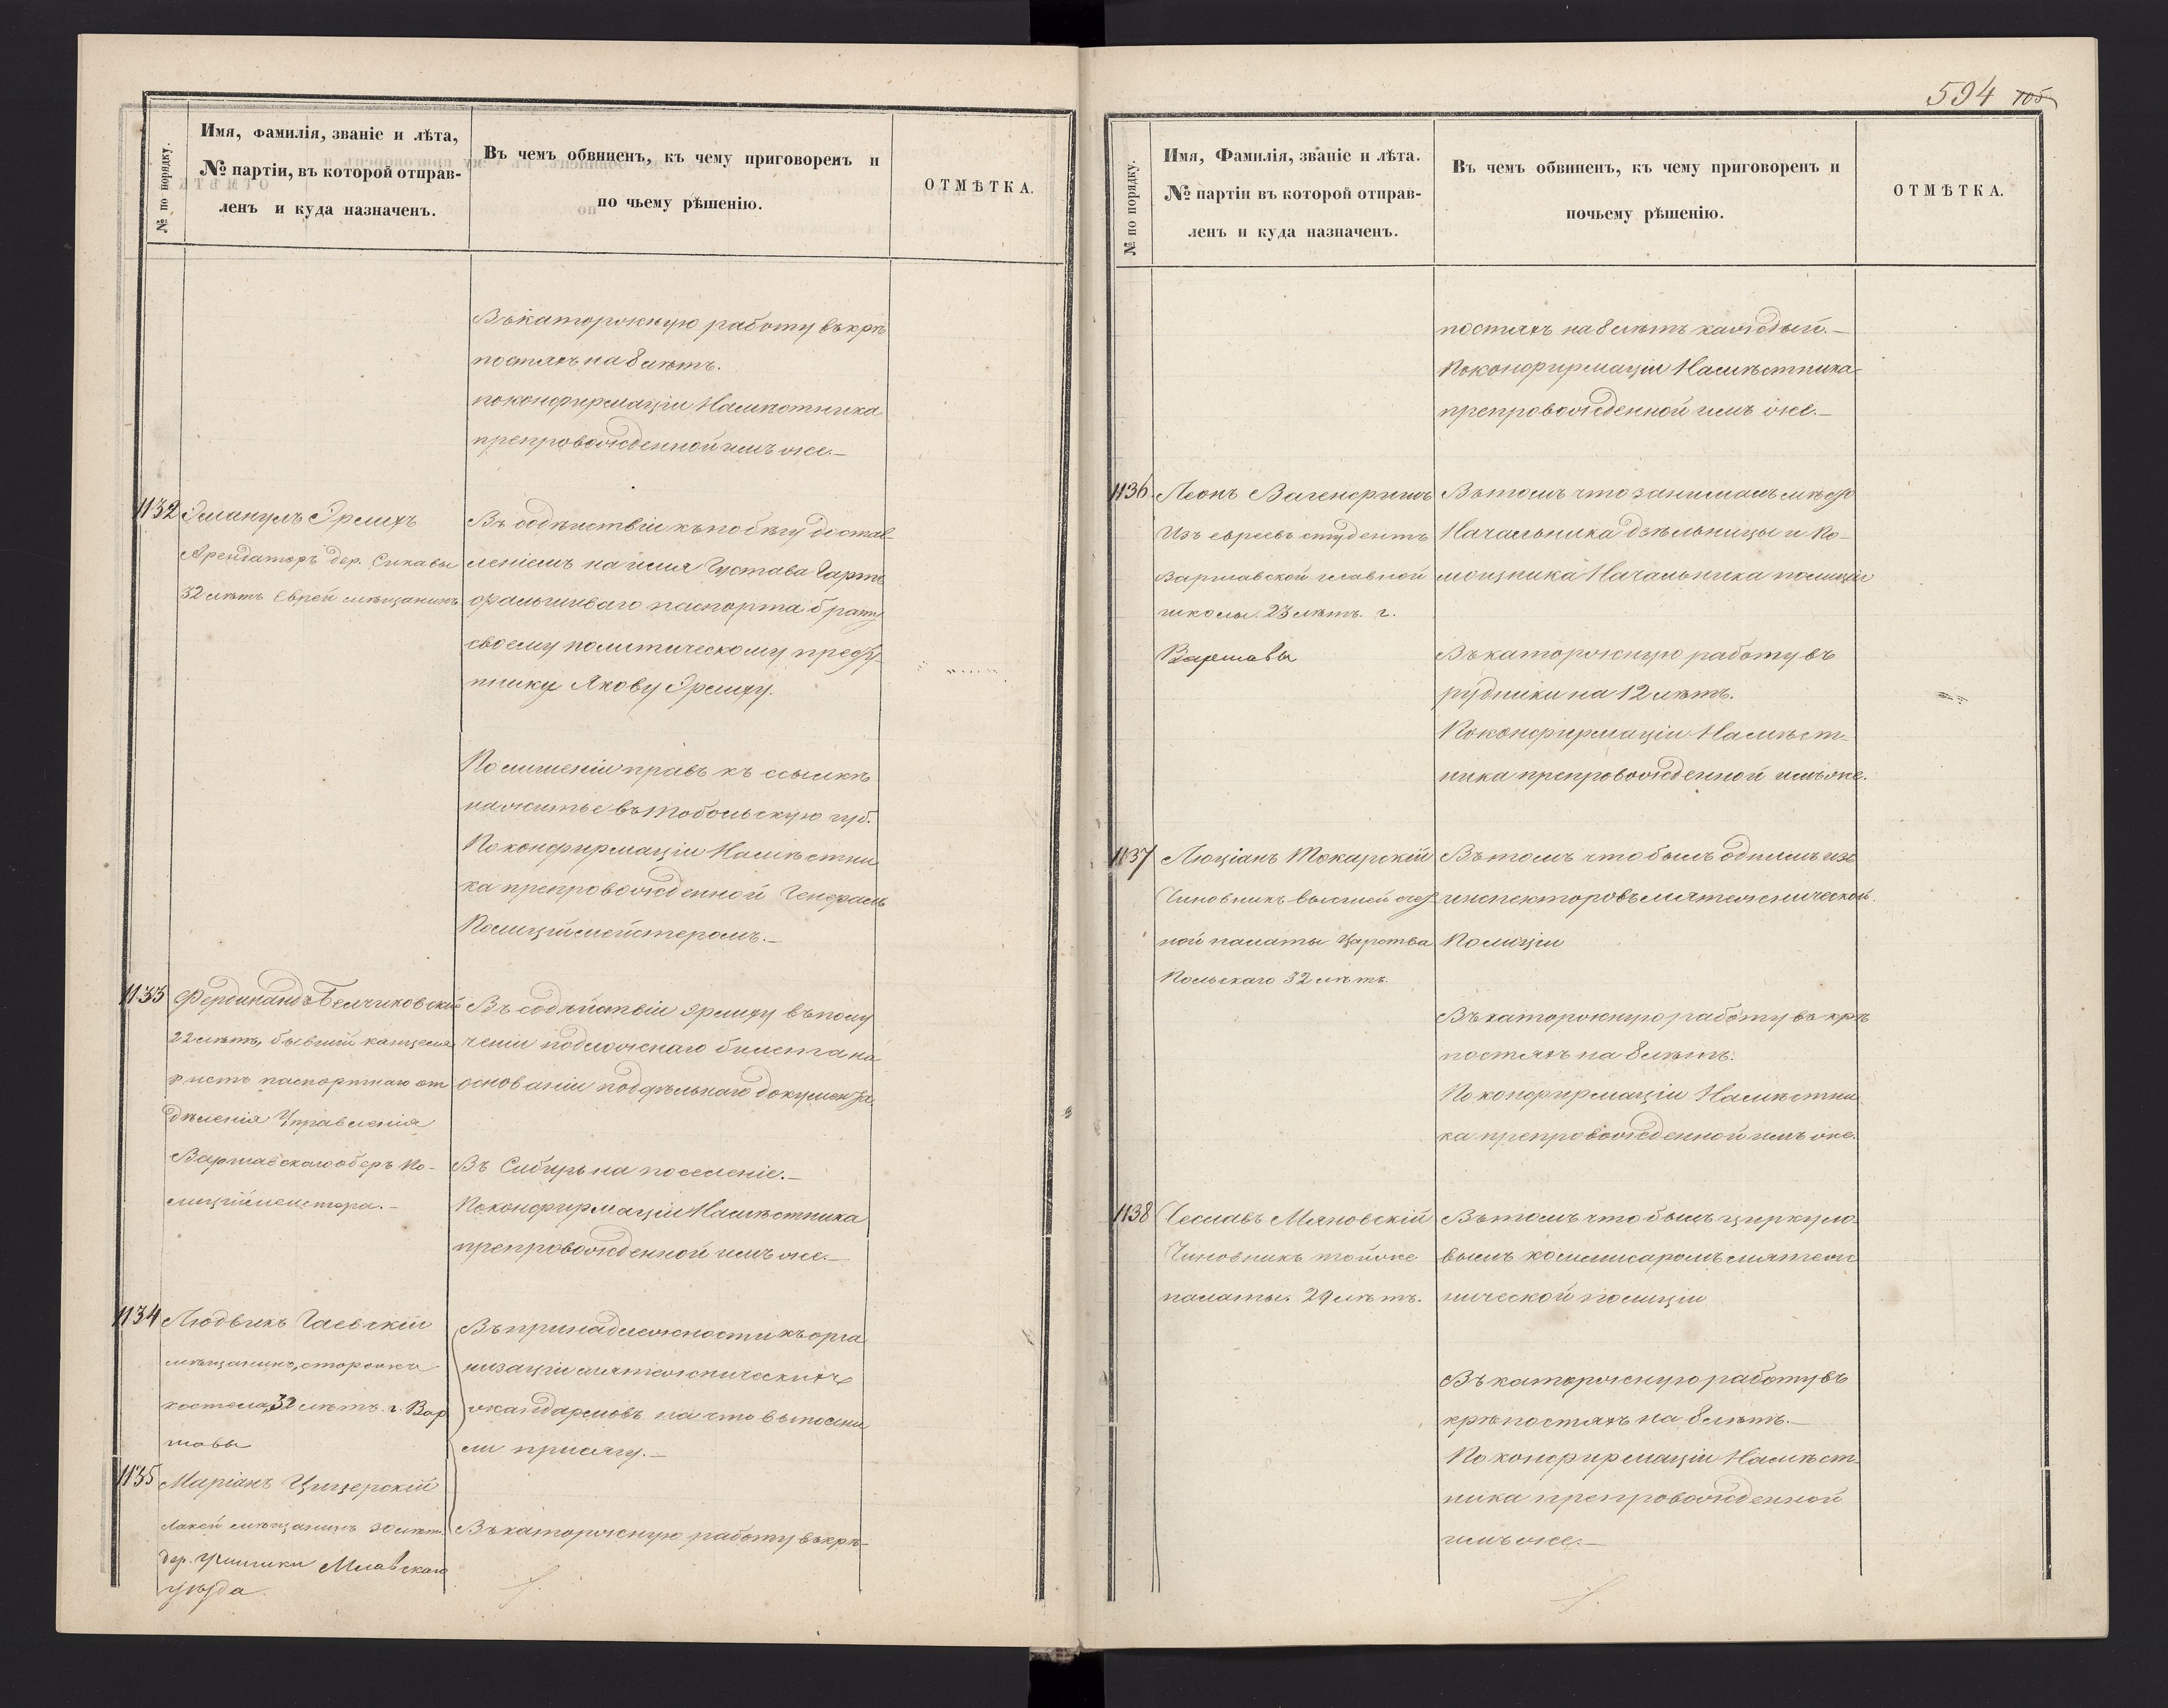 № по порядку.
Имя, фамилія, званіе и лѣта,
№ партіи, въ которой отправ-
ленъ и куда назначенъ.
Въ чемъ обвиненъ, къ чему приговоренъ и
по чьему рѣшенію.
ОТМѢТКА.
Въ каторжную работу въ крѣ
постяхъ на 8 лѣтъ.
по конфирмаціи Намѣстника
препровожденной имъ же.—
1132
Эмануилъ Эрлихъ
Арендаторъ дер. Сикавы
32 лѣтъ Еврей мѣщанинъ
Въ содѣйствіи къ побѣгу достав-
леніемъ на имя Густава Гарта
фальшиваго паспорта брату
своему политическому престу-
пнику Якову Эрлиху.
По лишеніи правъ къ ссылкѣ
на житье въ Тобольскую губ.
По конфирмаціи Намѣстни
ка препровожденной Генералъ
Полиціймейстеромъ.—
1133
Фердинандъ Белчиковскій
22 лѣтъ, бывшій канцеля
ристъ паспортнаго от
дѣленія Управленія
Варшавскаго оберъ По-
лиціймейстера.—
Въ содѣйствіи Эрлиху въ полу
ченіи подложнаго билета на
основаніи поддѣльнаго документа.
Въ Сибирь на поселеніе.—
По конфирмаціи Намѣстника
препровожденной имъ же.—
1134
Людвикъ Гаевскій
мѣщанинъ, сторожъ
костела, 32 лѣтъ. г. Вар
шавы
Въ принадлежности къ орга
низаціи мятежническихъ
жандармовъ на что выполни
ли присягу.—
1135
Маріанъ Цицерскій
Лакей мѣщанинъ 30 лѣтъ.
дер. Млавскаго
уѣзда.
Въ каторжную работу въ крѣ-
594 105
№ по порядку.
Имя, Фамилія, званіе и лѣта.
№ партіи въ которой отправ-
ленъ и куда назначенъ.
Въ чемъ обвиненъ, къ чему приговоренъ и
почьему рѣшенію.
ОТМѢТКА.
постяхъ на 8 лѣтъ каждый.—
По конфирмаціи Намѣстника
препровожденной имъ же.—
1136.
Леонъ Вагенфишъ
Изъ евреевъ студентъ
Варшавской главной
школы. 23 лѣтъ. г.
Варшавы
Въ томъ что занималъ мѣсто
Начальника дзѣльницы и По-
мощника Начальника полиціи
Въ каторжную работу въ
рудники на 12 лѣтъ.
По конфирмаціи Намѣст-
ника препровожденной имъ же.
1137
Люціанъ Токарскій
Чиновникъ высшей счет
ной палаты Царства
Польскаго 32 лѣтъ.
Въ томъ что былъ однимъ изъ
инспекторовъ мятежнической
Полиціи
Въ каторжную работу въ крѣ
постяхъ на 8 лѣтъ.
По конфирмаціи Намѣстни
ка препровожденной имъ же.
1138
Чеславъ Мяновскій
Чиновникъ той же
палаты. 29 лѣтъ.
Въ томъ что былъ циркуло-
вымъ коммисаромъ мятеж
нической полиціи
Въ каторжную работу въ
крѣпостяхъ на 8 лѣтъ.—
По конфирмаціи Намѣст-
ника препровожденной
имъ же.—